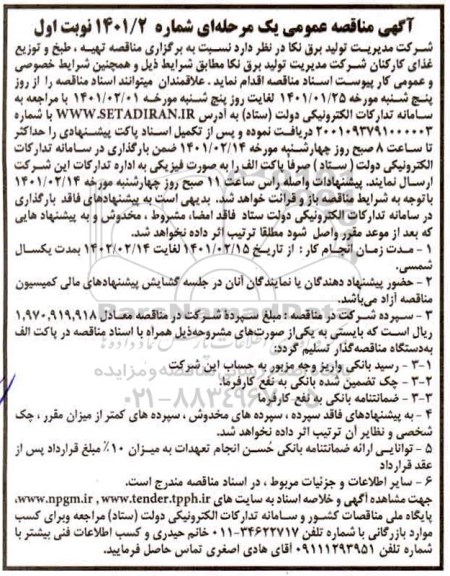 آگهی مناقصه عمومی یک مرحله‌ای شماره ۱۴۰۱/۲ نوبت اول
شرکت مدیریت تولید برق نکا در نظر دارد نسبت به برگزاری مناقصه تهیه ، طبخ و توزیع
غذای کارکنان شرکت مدیریت تولید برق نکا مطابق شرایط ذیل و همچنین شرایط خصوصی
و عمومی کار پیوست اسناد مناقصه اقدام نماید . علاقمندان میتوانند اسناد مناقصه را از روز
پنج شنبه مورخه ۱۴۰۱/۰۱/۲۵ لغایت روز پنج شنبه مورخه ۱۴۰۱/۰۲/۰۱ با مراجعه به
سامانه تدارکات الکترونیکی دولت (ستاد) به آدرس WWW.SETADIRAN.IR با شماره
۲۰۰۱۰۹۳۷۹۱۰۰۰۰۰۳ دریافت نموده و پس از تکمیل اسناد پاکت پیشنهادی را حداکثر
تا ساعت ۸ صبح روز چهارشنبه مورخه ۱۴۰۱/۰۲/۱۴ ضمن بارگذاری در سامانه تدارکات
الکترونیکی دولت ( ستاد ) صرفاً پاکت الف را به صورت فیزیکی به اداره تدارکات این شرکت
ارسال نمایند. پیشنهادات واصله راس ساعت ۱۱ صبح روز چهارشنبه مورخه ۱۴۰۱/۰۲/۱۴
باتوجه به شرایط مناقصه باز و قرائت خواهد شد. بدیهی است به پیشنهادهای فاقد بارگذاری
در سامانه تدارکات الکترونیکی دولت ستاد فاقد امضا، مشروط ، مخدوش و به پیشنهاد هایی
که بعد از موعد مقرر واصل شود مطلقا ترتیب اثر داده نخواهد شد.
۱ - مدت زمان انجام کار : از تاریخ ۱۴۰۱/۰۲/۱۵ لغایت ۱۴۰۲/۰۲/۱۴ بمدت یکسال
شمسی.
۲ - حضور پیشنهاد دهندگان یا نمایندگان آنان در جلسه گشایش پیشنهادهای مالی کمیسیون
مناقصه آزاد می‌باشد.
۳ - سپرده شرکت در مناقصه : مبلغ سپرده شرکت در مناقصه معادل ۱,۹۷۰,۹۱۹,۹۱۸
ریال است که بایستی به یکی از صورت‌های مشروحه ذیل همراه با اسناد مناقصه در پاکت الف
به دستگاه مناقصه‌گذار تسلیم گردد:
۳-۱ - رسید بانکی واریز وجه مزبور به حساب این شرکت
۳-۲ - چک تضمین شده بانکی به نفع کارفرما.
۳-۳ - ضمانتنامه بانکی به نفع کارفرما
۴ - به پیشنهادهای فاقد سپرده ، سپرده های مخدوش ، سپرده های کمتر از میزان مقرر ، چک
شخصی و نظایر آن ترتیب اثر داده نخواهد شد.
۵ - توانایی ارائه ضمانتنامه بانکی حُسن انجام تعهدات به میزان ۱۰٪ مبلغ قرارداد پس از
عقد قرارداد
۶ - سایر اطلاعات و جزئیات مربوط ، در اسناد مناقصه مندرج است.
جهت مشاهده آگهی و خلاصه اسناد به سایت های www.npgm.ir , www.tender.tpph.ir،
پایگاه ملی مناقصات کشور و سامانه تدارکات الکترونیکی دولت (ستاد) مراجعه وبرای کسب
موارد بازرگانی با شماره تلفن ۳۴۶۲۲۷۱۷-۰۱۱ خانم حیدری و کسب اطلاعات فنی بیشتر با
شماره تلفن ۰۹۱۱۱۲۹۳۹۵۱ آقای هادی اصغری تماس حاصل فرمایید.